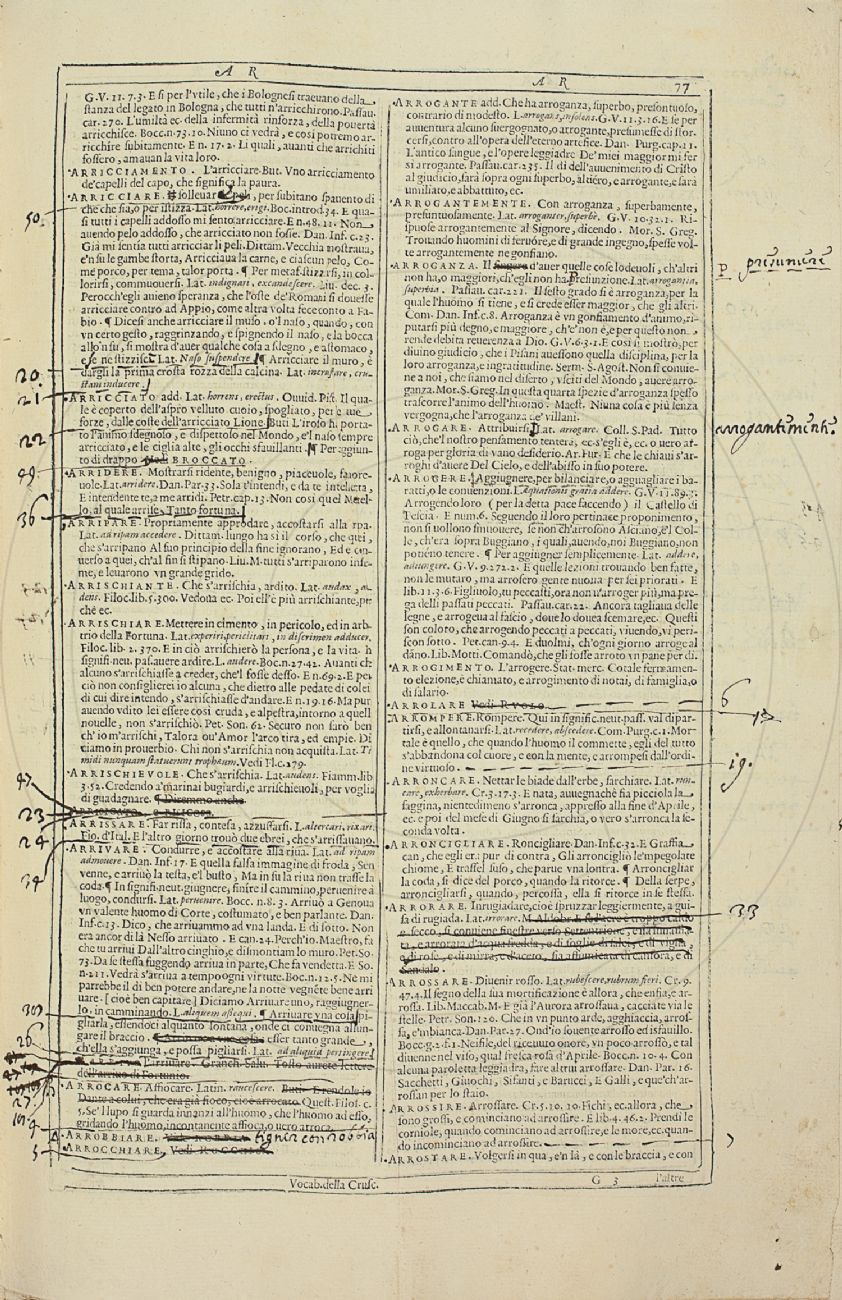 A R
G.V. 11. 7. 3. E si per l'vtile, che i Bolognesi traeuano della
stanza del legato in Bologna, che tutti n'arricchirono. Passau.
car. 270. L'umiltà ec. della infermità rinforza, della pouertà
arricchisce. Bocc. n. 73. 10. Niuno ci vedrà, e così potremo ar-
ricchire subitamente. E n. 17. 2. Li quali, auanti che arricchiti
fossero, amauan la vita loro.
ARRICCIAMENTO. L'arricciare. But. Vno arricciamento
de'capelli del capo, che significa la paura.
ARRICCIARE. solleuar peli, per subitano spauento di
che che sia, o per istizza. Lat. horrere, erigi. Bocc. introd. 34. E qua-
si tutti i capelli addosso mi sento arricciare. E n. 48. 12. Non
auendo pelo addosso, che arricciato non fosse. Dan. Inf. c. 23.
Già mi sentia tutti arricciar li peli. Dittam. Vecchia mostraua,
e'n su le gambe storta, Arricciaua la carne, e ciascun pelo, Co-
me porco, per tema, talor porta. ¶ Per metaf. stizzirsi, in col-
lorirsi, commuouersi. Lat. indignari, excandescere. Liu. dec. 3.
Perocch'egli auieno speranza, che l'oste de'Romani si douesse
arricciare contro ad Appio, come altra volta fece conto a Fa-
bio. ¶ Dicesi anche arricciare il muso, o'l naso, quando, con
vn certo gesto, raggrinzando, e spignendo il naso, e la bocca
allo'n su, si mostra d'auer qualche cosa a sdegno, e a stomaco,
e se ne stizzisce Lat. Naso suspendere. ¶ Arricciare il muro, è
dargli la prima crosta rozza della calcina. Lat. incrustare, cru-
stam inducere.
ARRICCIATO add. Lat. horrens, erectus. Ouuid. Pist. Il qua-
le è coperto dell'aspro velluto cuoio, spogliato, per le tue
forze, dalle coste dell'arricciato Lione. But L'irose hi porta-
to l'animo sdegnoso, e dispettoso nel Mondo, e'l naso sempre
arricciato, e le ciglia alte, gli occhi sfauillanti. ¶ Per aggiun-
to di drappo Vedi BROCCATO.
ARRIDERE. Mostrarsi ridente, benigno, piaceuole, fauore-
uole. Lat. arridere. Dan. Par. 33. Sola t'intendi, e da te intelletta,
E intendente te, a me arridi. Petr. cap. 13. Non così quel Metel-
lo, al quale arrise, Tanto fortuna.
ARRIPARE. Propriamente approdare, accostarsi alla ripa.
Lat. ad ripam accedere. Dittam. lungo ha sì il corso, che qui,
che s'arripano Al suo principio della fine ignorano, Ed e con-
uerso a quei, ch'al fin si stipano. Liu. M. tutti s'arriparono insie-
me, e leuarono vn grande grido.
ARRISCHIANTE. Che s'arrischia, ardito. Lat. audax, au-
dens. Filoc. lib. 5. 300. Vedoua ec. Poi ell'è più arrischiante, per-
chè ec.
ARRISCHIARE. Mettere in cimento, in pericolo, ed in arb-
trio della Fortuna. Lat. experiri, periclitari, in discrimen adducer.
Filoc. lib. 2. 370. E in ciò arrischierò la persona, e la vita.
signifi. neu. pass. auere ardire. L. audere. Bocc. n. 27. 42. Auanti ch
alcuno s'arrischiasse a creder, che'l fosse desso. E n. 69. 2. E per
ciò non consiglierei io alcuna, che dietro alle pedate di colei
di cui dire intendo, s'arrischiasse d'andare. E n. 19. 16. Ma pur
auendo vdito lei essere così cruda, e alpestra, intorno a quell
nouelle, non s'arrischiò. Pet. Son. 62. Securo non sarò ben
ch' io m'arrischi, Talora ou'Amor l'arco tira, ed empie. Di
ciamo in prouerbio. Chi non s'arrischia non acquista. Lat. Ti
midi nunquam statuerunt trophæum. Vedi Fl. c. 179.
ARRISCHIEVOLE. Che s'arrischia. Lat. audens. Fiamm. lib
3. 52. Credendo a'marinai bugiardi, e arrischieuoli, per voglia
di guadagnare. ¶ Diremmo anche
ARRISICATO, e RISICOSO.
ARRISSARE. Far rissa, contesa, azzuffarsi. L. altercari, rixari.
Fio. d'Ital. E l'altro giorno trouò due ebrei, che s'arrissauano.
ARRIVARE. Condurre, e accostare alla riua. Lat. ad ripam
admouere. Dan. Inf. 17. E quella falsa immagine di froda, Sen
venne, e arriuò la testa, e'l busto, Ma in su la riua non trasse la
coda. ¶ In signifi. neut. giugnere, finire il cammino, peruenire à
luogo, condursi. Lat. peruenire. Bocc. n. 8. 3. Arriuò a Genoua
vn valente huomo di Corte, costumato, e ben parlante. Dan.
Inf. c. 13. Dico, che arriuammo ad vna landa. E di sotto. Non
era ancor di là Nesso arriuato. E can. 24. Perch'io. Maestro, fa
che tu arriui Dall'altro cinghio, e dismontiam lo muro. Pet. So.
73. Da se stessa fuggendo arriua in parte, Che fa vendetta. E So.
n. 211. Vedrà s'arriua a tempo ogni virtute. Boc. n. 12. 5. Ne mi
parrebbe il dì ben potere andare, ne la notte vegnēte bene arri
uare. [cioè ben capitare] Diciamo Arriuare vno, raggiugner-
lo, in camminando. L. aliquem assequi. ¶ Arriuare vna cosa pi-
gliarla, essendoci alquanto lontana, onde ci conuegna allun-
gare il braccio. ¶ Arriuare vna cosa esser tanto grande,
ch'ella s'aggiunga, e possa pigliarsi. Lat. ad aliquid pertingere.
L'arriuare. Granch. Salu. Tosto aurete lettere
dell'arriuo di Fortunio.
ARROCARE. Affiocare. Latin. raucescere. But. Erendole io
Dante a colui, che era già fioco, cioè arrocato. Quest. Filos. c.
5. Se'l lupo si guarda innanzi all'huomo, che l'huomo ad esso,
gridando l'huomo, incontanente affioca, o uero arroca.
ARROBBIARE. tigner con robbia
ARROCCHIARE. Vedi ROCCHIO.
Vocab. della Crusc.
A R 77
ARROGANTE add. Che ha arroganza, superbo, presontuoso,
contrario di modesto. L. arrogans, insolens. G.V. 11. 3. 16. E se per
auuentura alcuno suergognato, o arrogante, presumesse di stor-
cersi, contro all'opera dell'eterno artefice. Dan. Purg. cap. 11.
L'antico sangue, e l'opere leggiadre De'miei maggior mi fer
sì arrogante. Passau. car. 235. Il dì dell'auuenimento di Cristo
al giudicio, sarà sopra ogni superbo, altiero, e arrogante, e sarà
umiliato, e abbattuto, ec.
ARROGANTEMENTE. Con arroganza, superbamente,
presuntuosamente. Lat. arroganter, superbè. G.V. 10. 32. 1. Ri-
spuose arrogantemente al Signore, dicendo. Mor. S. Greg.
Trouando huomini di feruore, e di grande ingegno, spesse vol-
te arrogantemente ne gonfiano.
ARROGANZA. Il fingere d'auer quelle cose lodeuoli, ch'altri
non ha, o maggiori, ch'egli non ha. Presunzione. Lat. arrogantia,
superbia. Passau. car. 221. Il sesto grado si è arroganza, per la
quale l'huomo si tiene, e si crede esser maggior, che gli altri.
Com. Dan. Inf. c. 8. Arroganza è vn gonfiamento d'animo, ri-
putarsi più degno, e maggiore, ch'e'non è, e per questo non
rende debita reuerenza a Dio. G.V. 6. 3. 1. E così si mostrò, per
diuino giudicio, che i Pisani auessono quella disciplina, per la
loro arroganza, e ingratitudine. Serm. S. Agost. Non si conuie-
ne a noi, che siamo nel diserto, vsciti del Mondo, auere arro-
ganza. Mor. S. Greg. In questa quarta spezie d'arroganza spesso
trascorre l'animo dell'huomo. Maest. Niuna cosa è più senza
vergogna, che l'arroganza de' villani.
ARROGARE. Attribuirsi. Lat. arrogare. Coll. S. Pad. Tutto
ciò, che'l nostro pensamento tenterà, ec. s'egli è, ec. o uero ar-
roga per gloria di vano desiderio. Ar. Fur. E che le chiaui s'ar-
roghi d'auere Del Cielo, e dell'abisso in suo potere.
ARROGERE. Aggiugnere, per bilanciare, o agguagliare i ba-
ratti, o le conuenzioni. L. Æquationis gratia addere. G.V. 11. 89. 3.
Arrogendo loro (per la detta pace faccendo) il Castello di
Pescia. E num. 6. Seguendo il loro pertinace proponimento,
non si vollono smuouere, se non ch'arrosono Asciano, e l Col-
le, ch'era sopra Buggiano, i quali, auendo, noi Buggiano, non
potieno tenere. ¶ Per aggiugner semplicemente. Lat. addere,
adiungere. G.V. 9. 272. 2. E quelle lezioni trouando ben fatte,
non le mutaro, ma arrosero gente nuoua per sei priorati. E
lib. 11. 3. 6. Figliuolo, tu peccasti, ora non v'arroger più, ma pre-
ga delli passati peccati. Passau. car. 22. Ancora tagliaua delle
legne, e arrogeua al fascio, doue lo douea scemare, ec. Questi
son coloro, che arrogendo peccati a peccati, viuendo, vi peri-
scon sotto. Pet. can. 9. 4. E duolmi, ch'ogni giorno arroge al
dāno. Lib. Motti. Comandò, che gli fosse arroto vn pane per dì.
ARROGIMENTO. L'arrogere. Stat. merc. Cotale fermamen-
to elezione, è chiamato, e arrogimento di notai, di famiglia, o
di salario.
ARROLARE Vedi RVOLO.
ARROMPERE. Rompere. Qui in signific. neut. pass. val dipar-
tirsi, e allontanarsi. Lat. recedere, abscedere. Com. Purg. c. 1. Mor-
tale è quello, che quando l'huomo il commette, egli del tutto
s'abbandona col cuore, e con la mente, e arrompesi dall'ordi-
ne virtuoso.
ARRONCARE. Nettar le biade dall'erbe, sarchiare. Lat. run-
care, exherbare. Cr. 3. 17. 3. E nata, auuegnachè sia picciola la
saggina, nientedimeno s'arronca, appresso alla fine d'Aprile,
ec. e poi del mese di Giugno si sarchia, o vero s'arronca la se-
conda volta.
ARRONCIGLIARE. Roncigliare. Dan. Inf. c. 32. E Graffia-
can, che egli era più di contra, Gli arroncigliò le'mpegolate
chiome, E trassel suso, che parue vna lontra. ¶ Arroncigliar
la coda, si dice del porco, quando la ritorce. ¶ Della serpe,
arroncigliarsi, quando, percossa, ella si ritorce in se stessa.
ARRORARE. Inrugiadare, cioè spruzzar leggiermente, a gui-
sa di rugiada. Lat. irrorare. M. Aldobr. E se l'aere è troppo caldo
e secco, si conuiene finestre verso Settentrione, e sia innaffia-
ta, e arrorata d'acqua fredda, e di foglie di salci, e di vigna,
e di rose, e di mirra, e d'aceto, sia affumicata di canfora, e di
Sandalo.
ARROSSARE. Diuenir rosso. Lat. rubescere, rubrum fieri. Cr. 9.
47. 4. Il segno della sua mortificazione è allora, che enfia, e ar-
rossa. Lib. Maccab. M. E già l'Aurora arrossaua, cacciate via le
stelle. Petr. Son. 120. Che in vn punto arde, agghiaccia, arros-
sa, e'mbianca. Dan. Par. 27. Ond'io souente arrosso ed isfauillo.
Bocc. g. 2. f. 1. Neifile, del riceuuto onore, vn poco arrossò, e tal
diuenne nel viso, qual fresca rosa d'Aprile. Bocc. n. 10. 4. Con
alcuna paroletta leggiadra, fare altrui arrossare. Dan. Par. 16.
Sacchetti, Giuochi, Sifanti, e Barucci, E Galli, e que'ch'ar-
rossan per lo staio.
ARROSSIRE. Arrossare. Cr. 5. 10. 10. Fichi, ec. allora, che
sono grossi, e cominciano ad arrossire. E lib. 4. 46. 2. Prendi le
corniole, quando cominciano ad arrossire, e le more, ec. quan-
do incominciano ad arrossire.
ARROSTARE. Volgersi in qua, e'n là, e con le braccia, e con
G 3 l'altre
50.
20.
21
22
49
36
47
23
24
34
303
26
27
9
5
arrogantiment.
6
13
19.
33